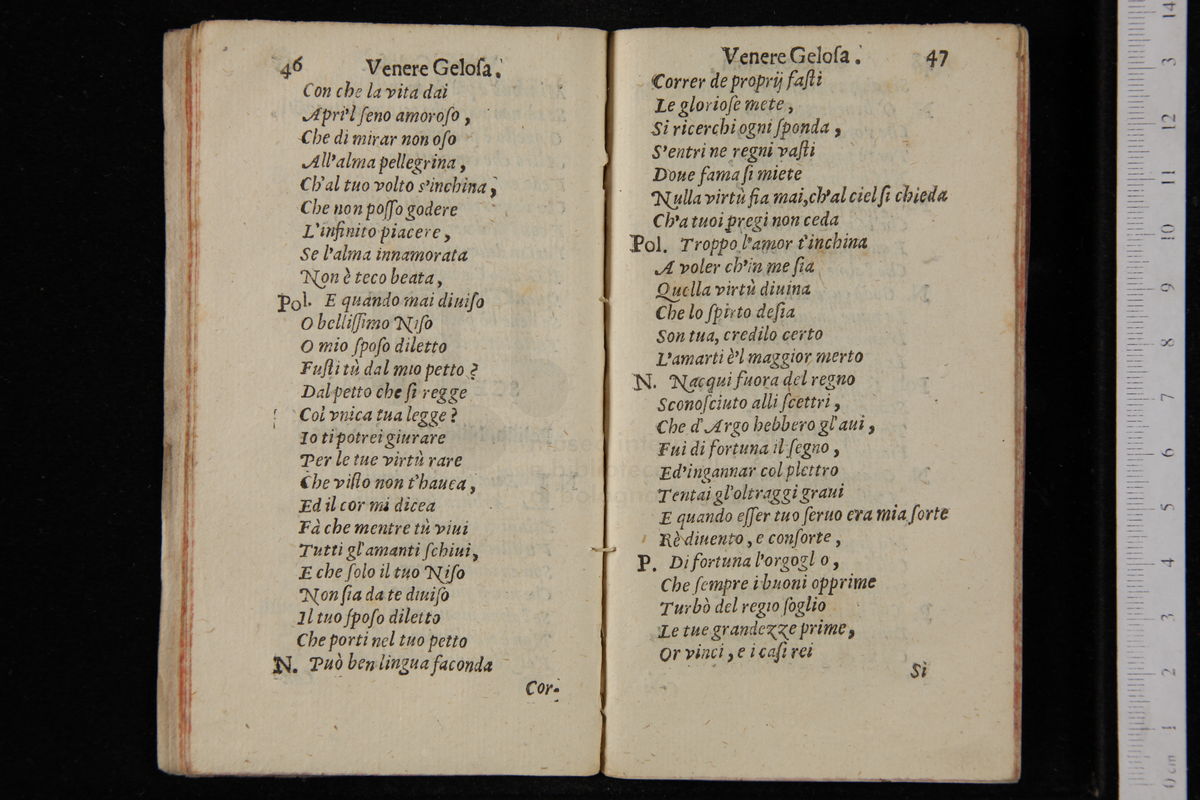 46 Venere Geloſa.
Con che la vita dai
Apri'l ſeno amoroſo,
Che di mirar non oſo
All'alma pellegrina,
Ch'al tuo volto s'inchina,
Che non poſſo godere
L'infinito piacere,
Se l'alma innamorata
Non è teco beata,
Pol. E quando mai diuiſo
O belliſſimo Niſo
O mio ſpoſo diletto
Fuſti tù dal mio petto?
Dal petto che ſi regge
Col vnica tua legge?
Io ti potrei giurare
Per le tue virtù rare
Che viſto non t'hauea,
Ed il cor mi dicea
Fà che mentre tù viui
Tutti gl'amanti ſchiui,
E che ſolo il tuo Niſo
Non ſia da te diuiſo
Il tuo ſpoſo diletto
Che porti nel tuo petto
N. Può ben lingua faconda
Cor-
Venere Geloſa. 47
Correr de proprij faſti
Le glorioſe mete,
Si ricerchi ogni ſponda,
S'entri ne regni vaſti
Doue fama ſi miete
Nulla virtù fia mai, ch'al ciel ſi chieda
Ch'a tuoi pregi non ceda
Pol. Troppo l'amor t'inchina
A voler ch'in me ſia
Quella virtù diuina
Che lo ſpirto deſia
Son tua, credilo certo
L'amarti è'l maggior merto
N. Nacqui fuora del regno
Sconoſciuto alli ſcettri,
Che d'Argo hebbero gl'aui,
Fui di fortuna il ſegno,
Ed'ingannar col plettro
Tentai gl'oltraggi graui
E quando eſſer tuo ſeruo era mia ſorte
Rè diuento, e conſorte,
P. Di fortuna l'orgogl o,
Che ſempre i buoni opprime
Turbò del regio ſoglio
Le tue grandezze prime,
Or vinci, e i caſi rei
Si
0 cm 1 2 3 4 5 6 7 8 9 10 11 12 3 14